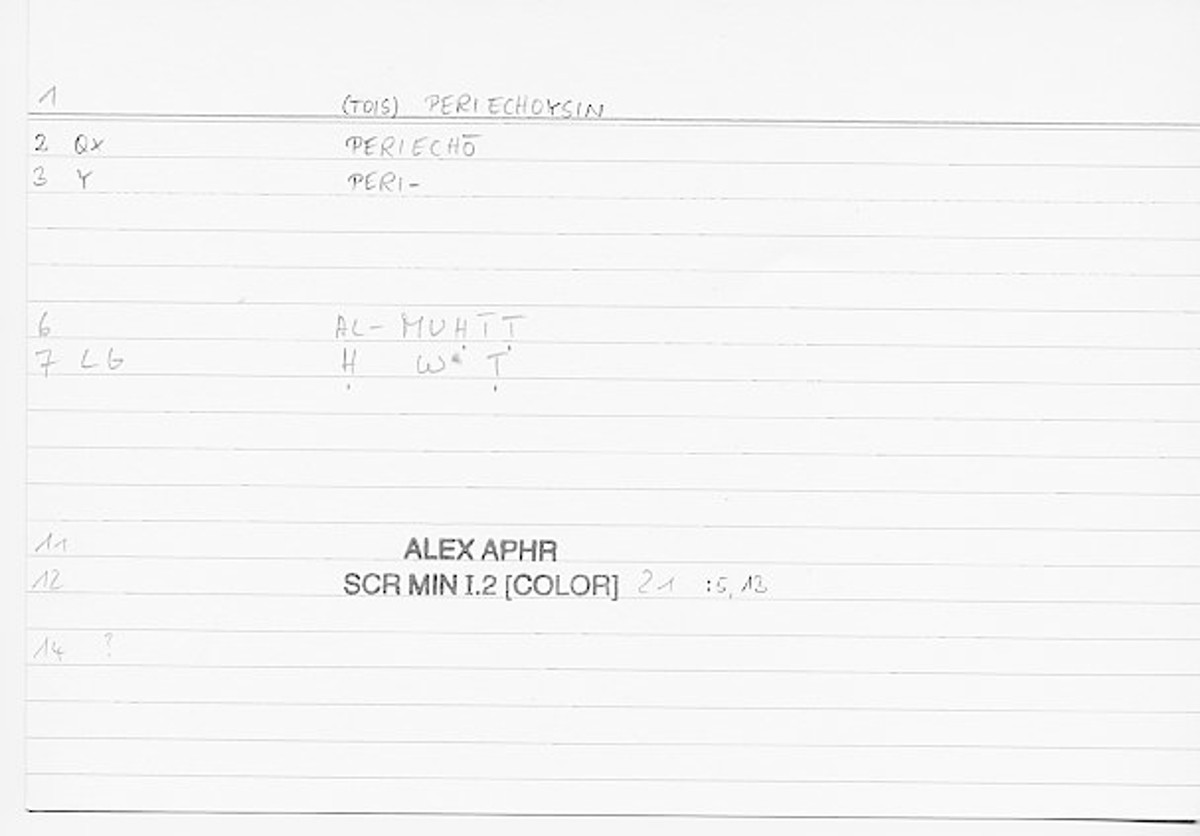 1 (TOIS) PERIECHOYSIN
2 Qx PERIECHŌ
3 Y PERI-
6 AL- MUḤĪṬ
7 LG Ḥ Wª Ṭ
11 ALEX APHR
12 SCR MIN I.2 [COLOR] 21 :5, 13
14 ?